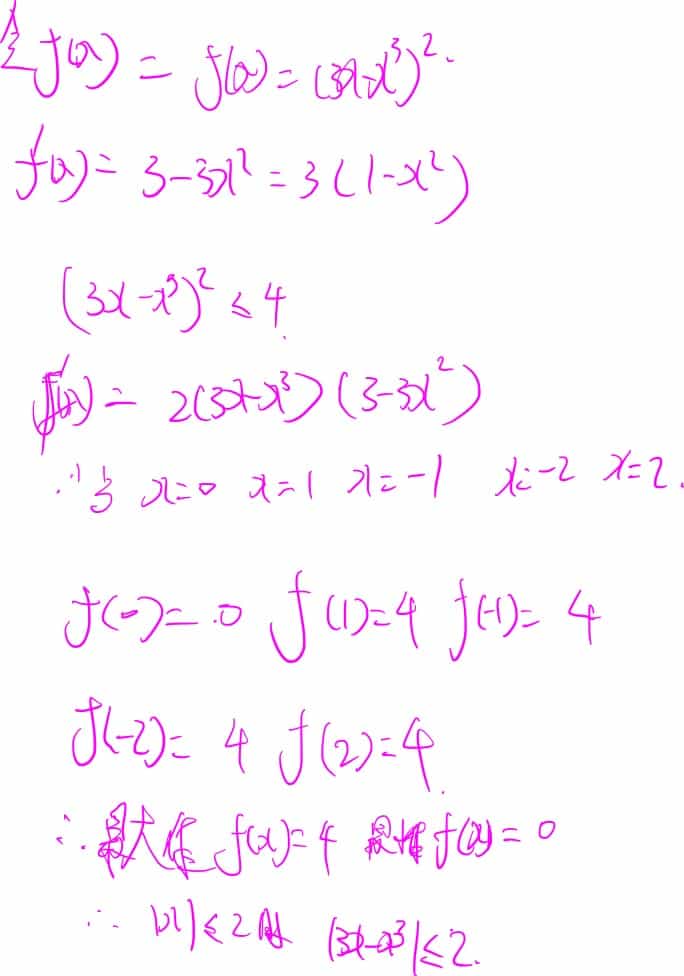 令f(x) = f(x) = (3x-x³)².
f'(x) = 3-3x² = 3(1-x²)
(3x-x³)² ≤ 4.
f'(x) = 2(3x-x³)(3-3x²)
∴当 x=0 x=1 x=-1 x=-2 x=2.
f(0)=0 f(1)=4 f(-1)=4
f(-2)=4 f(2)=4.
∴最大值 f(x)=4 最小值 f(x)=0
∴ |x|≤2时 |3x-x³|≤2.